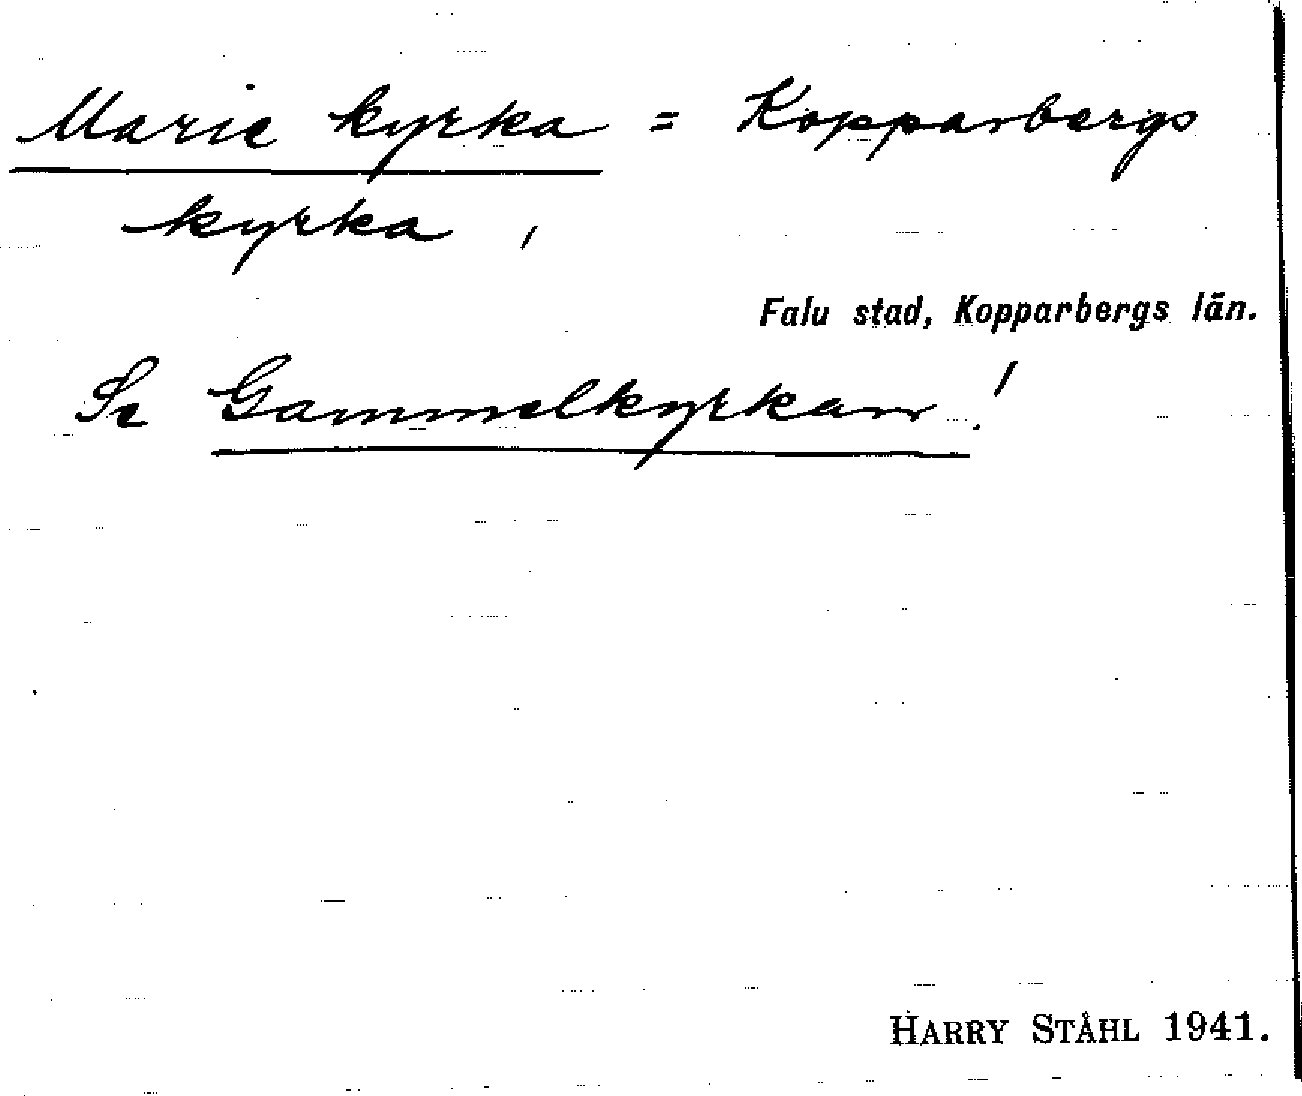 Marie kyrka = Kopparbergs
kyrka,
Falu stad, Kopparbergs län.
Se Gammelkyrkan!
HARRY STÅHL 1941.